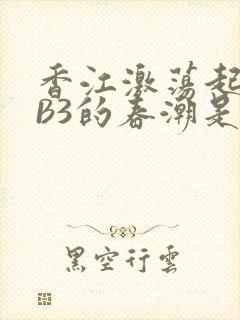 香江激荡起
B3的春潮是
黑空行雲